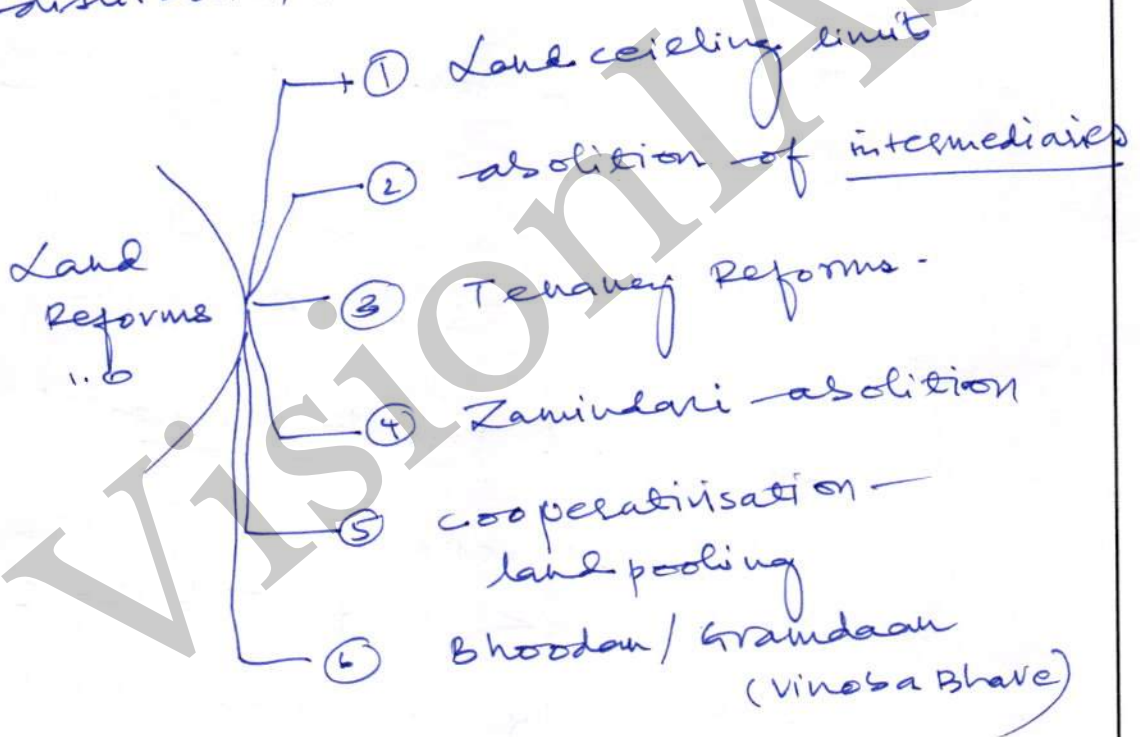 Land
Reforms
1.0
① Land ceieling limits
② abolition of intermediaries
③ Tenancy Reforms.
④ Zamindari abolition
⑤ cooperativisation –
land pooling
⑥ Bhoodan / Gramdaan
(Vinoba Bhave)
VisionIAS